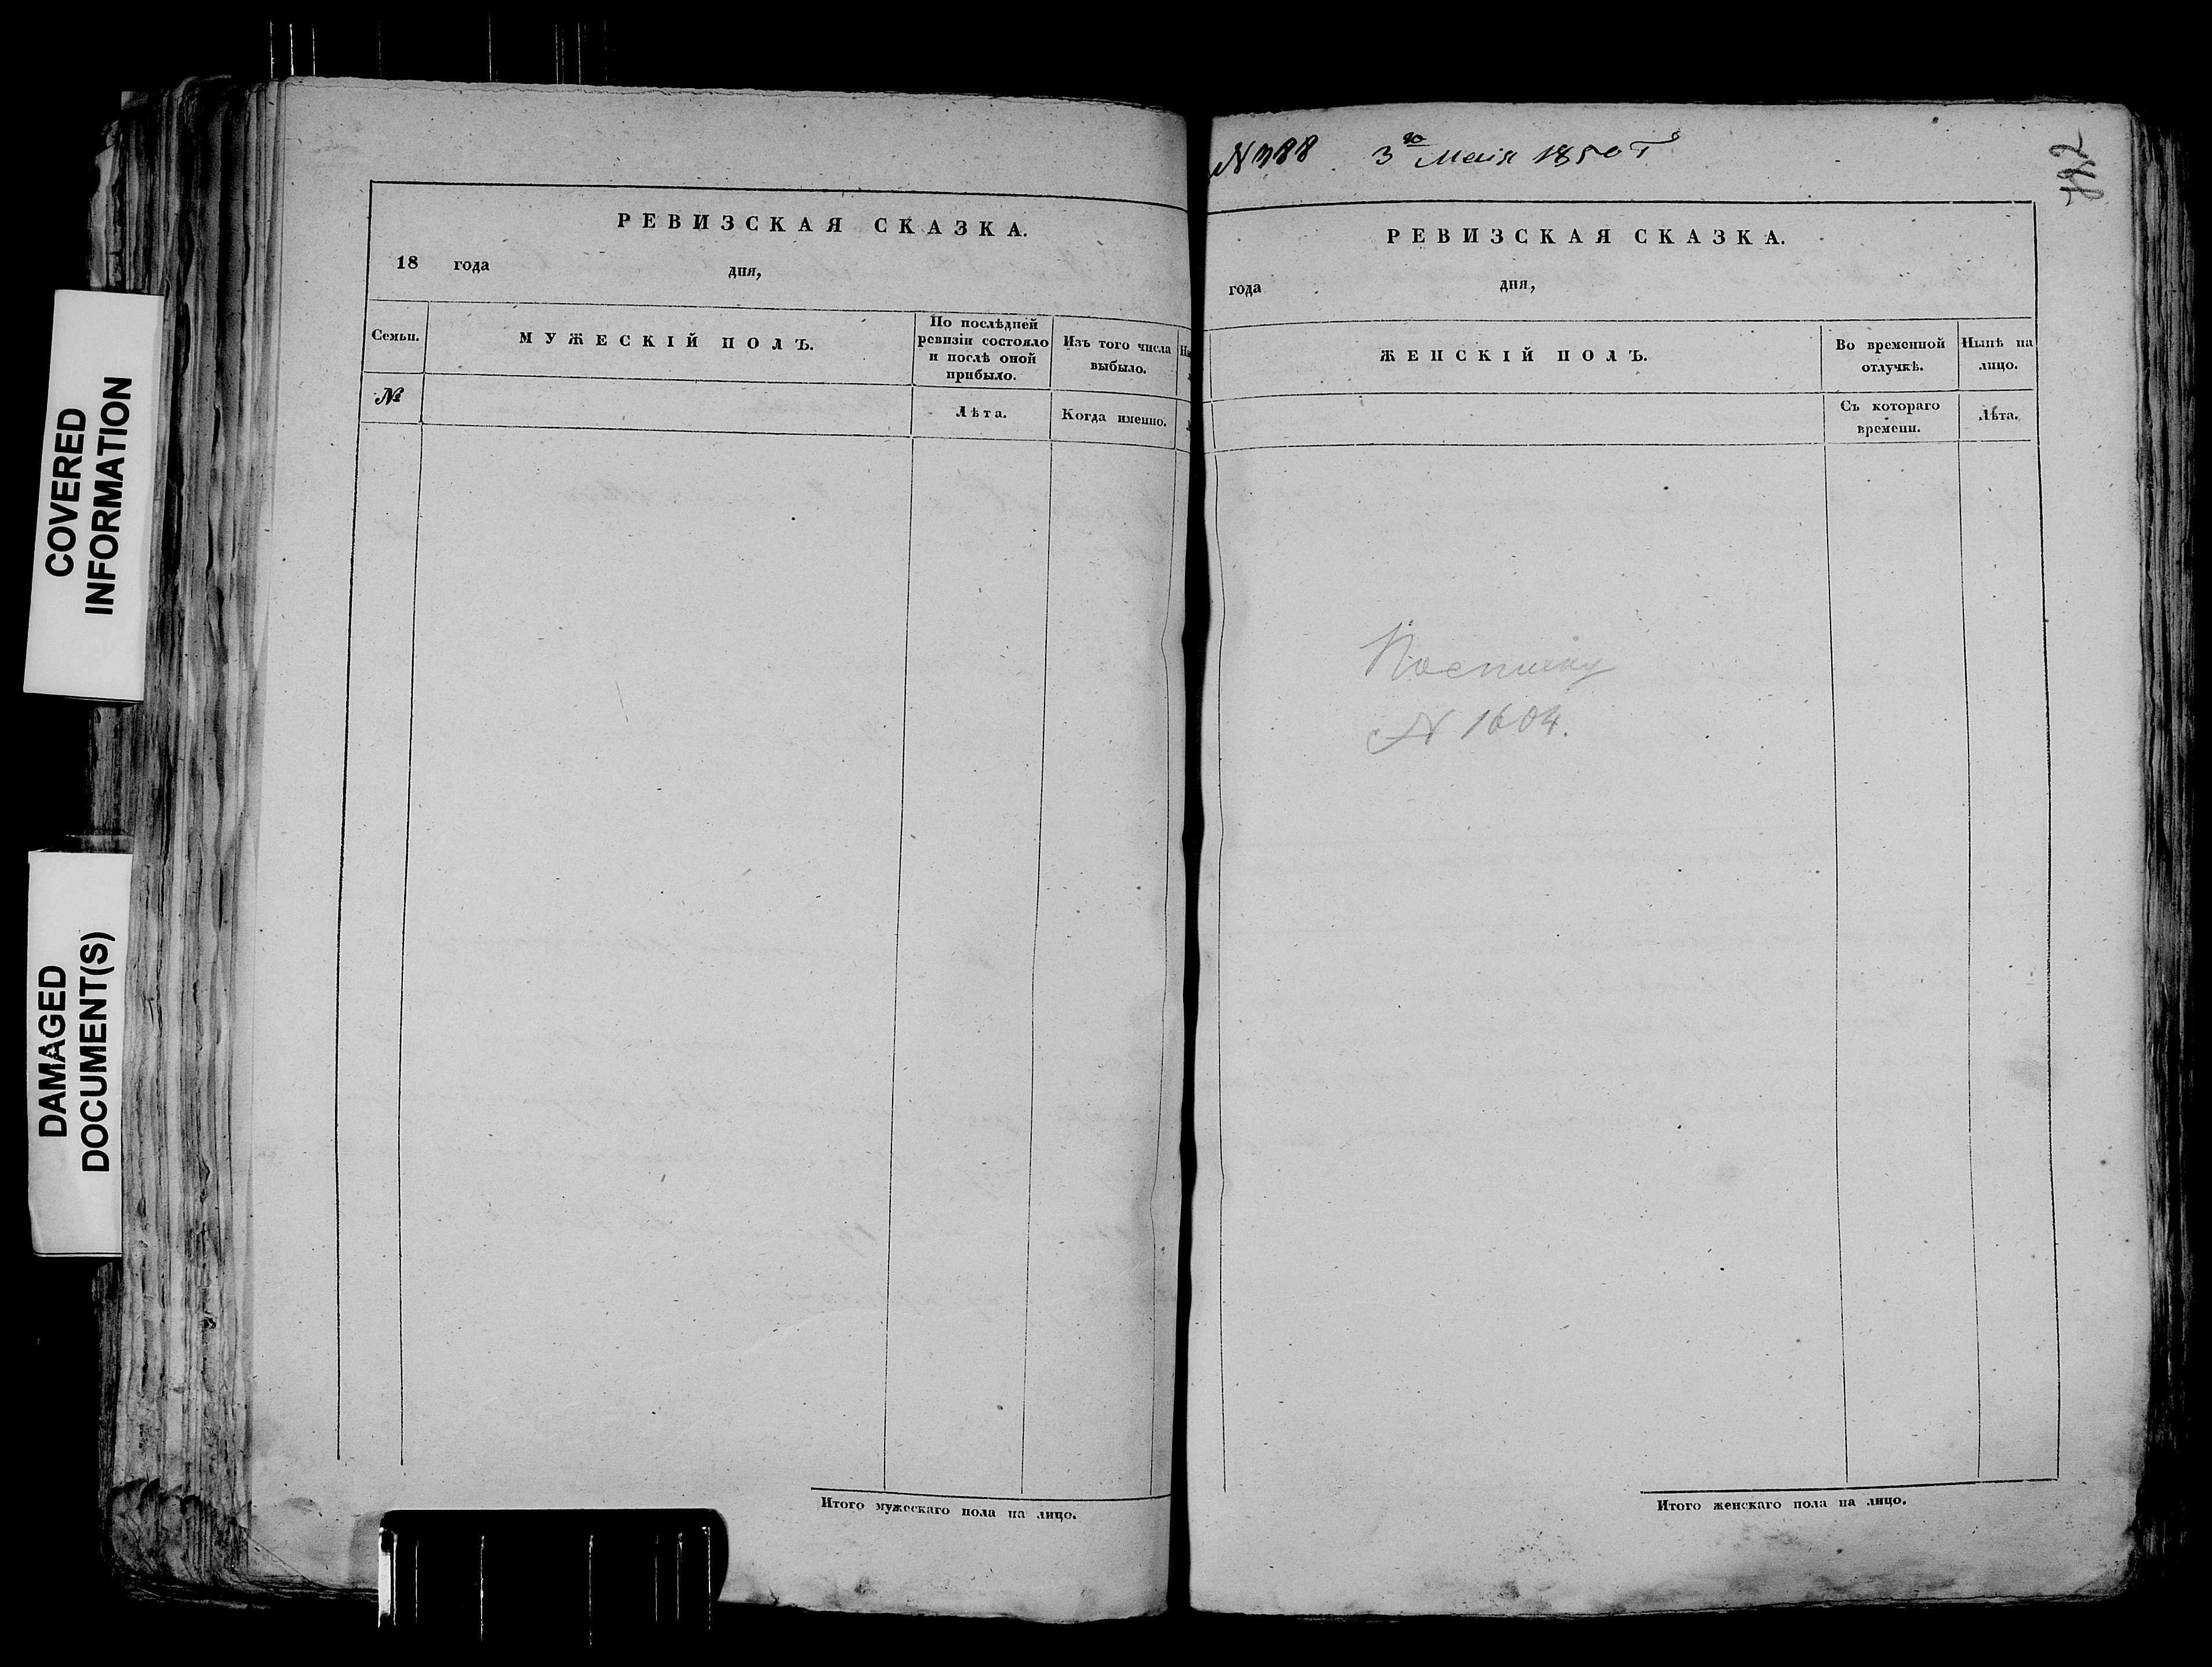 COVERED
INFORMATION
DAMAGED
DOCUMENT(S)
РЕВИЗСКАЯ СКАЗКА.
18 года дня,
Семьи.
МУЖЕСКІЙ ПОЛЪ.
По послѣдней
ревизіи состояло
и послѣ оной
прибыло.
Изъ того числа
выбыло.
№
Лѣта.
Когда именно.
Итого мужескаго пола на лицо.
N 388 3го Маія 1850 г
РЕВИЗСКАЯ СКАЗКА.
года дня,
ЖЕНСКІЙ ПОЛЪ.
Во временной
отлучкѣ.
Нынѣ на
лицо.
Съ котораго
времени.
Лѣта.
По списку
N 1604.
Итого женскаго пола на лицо.